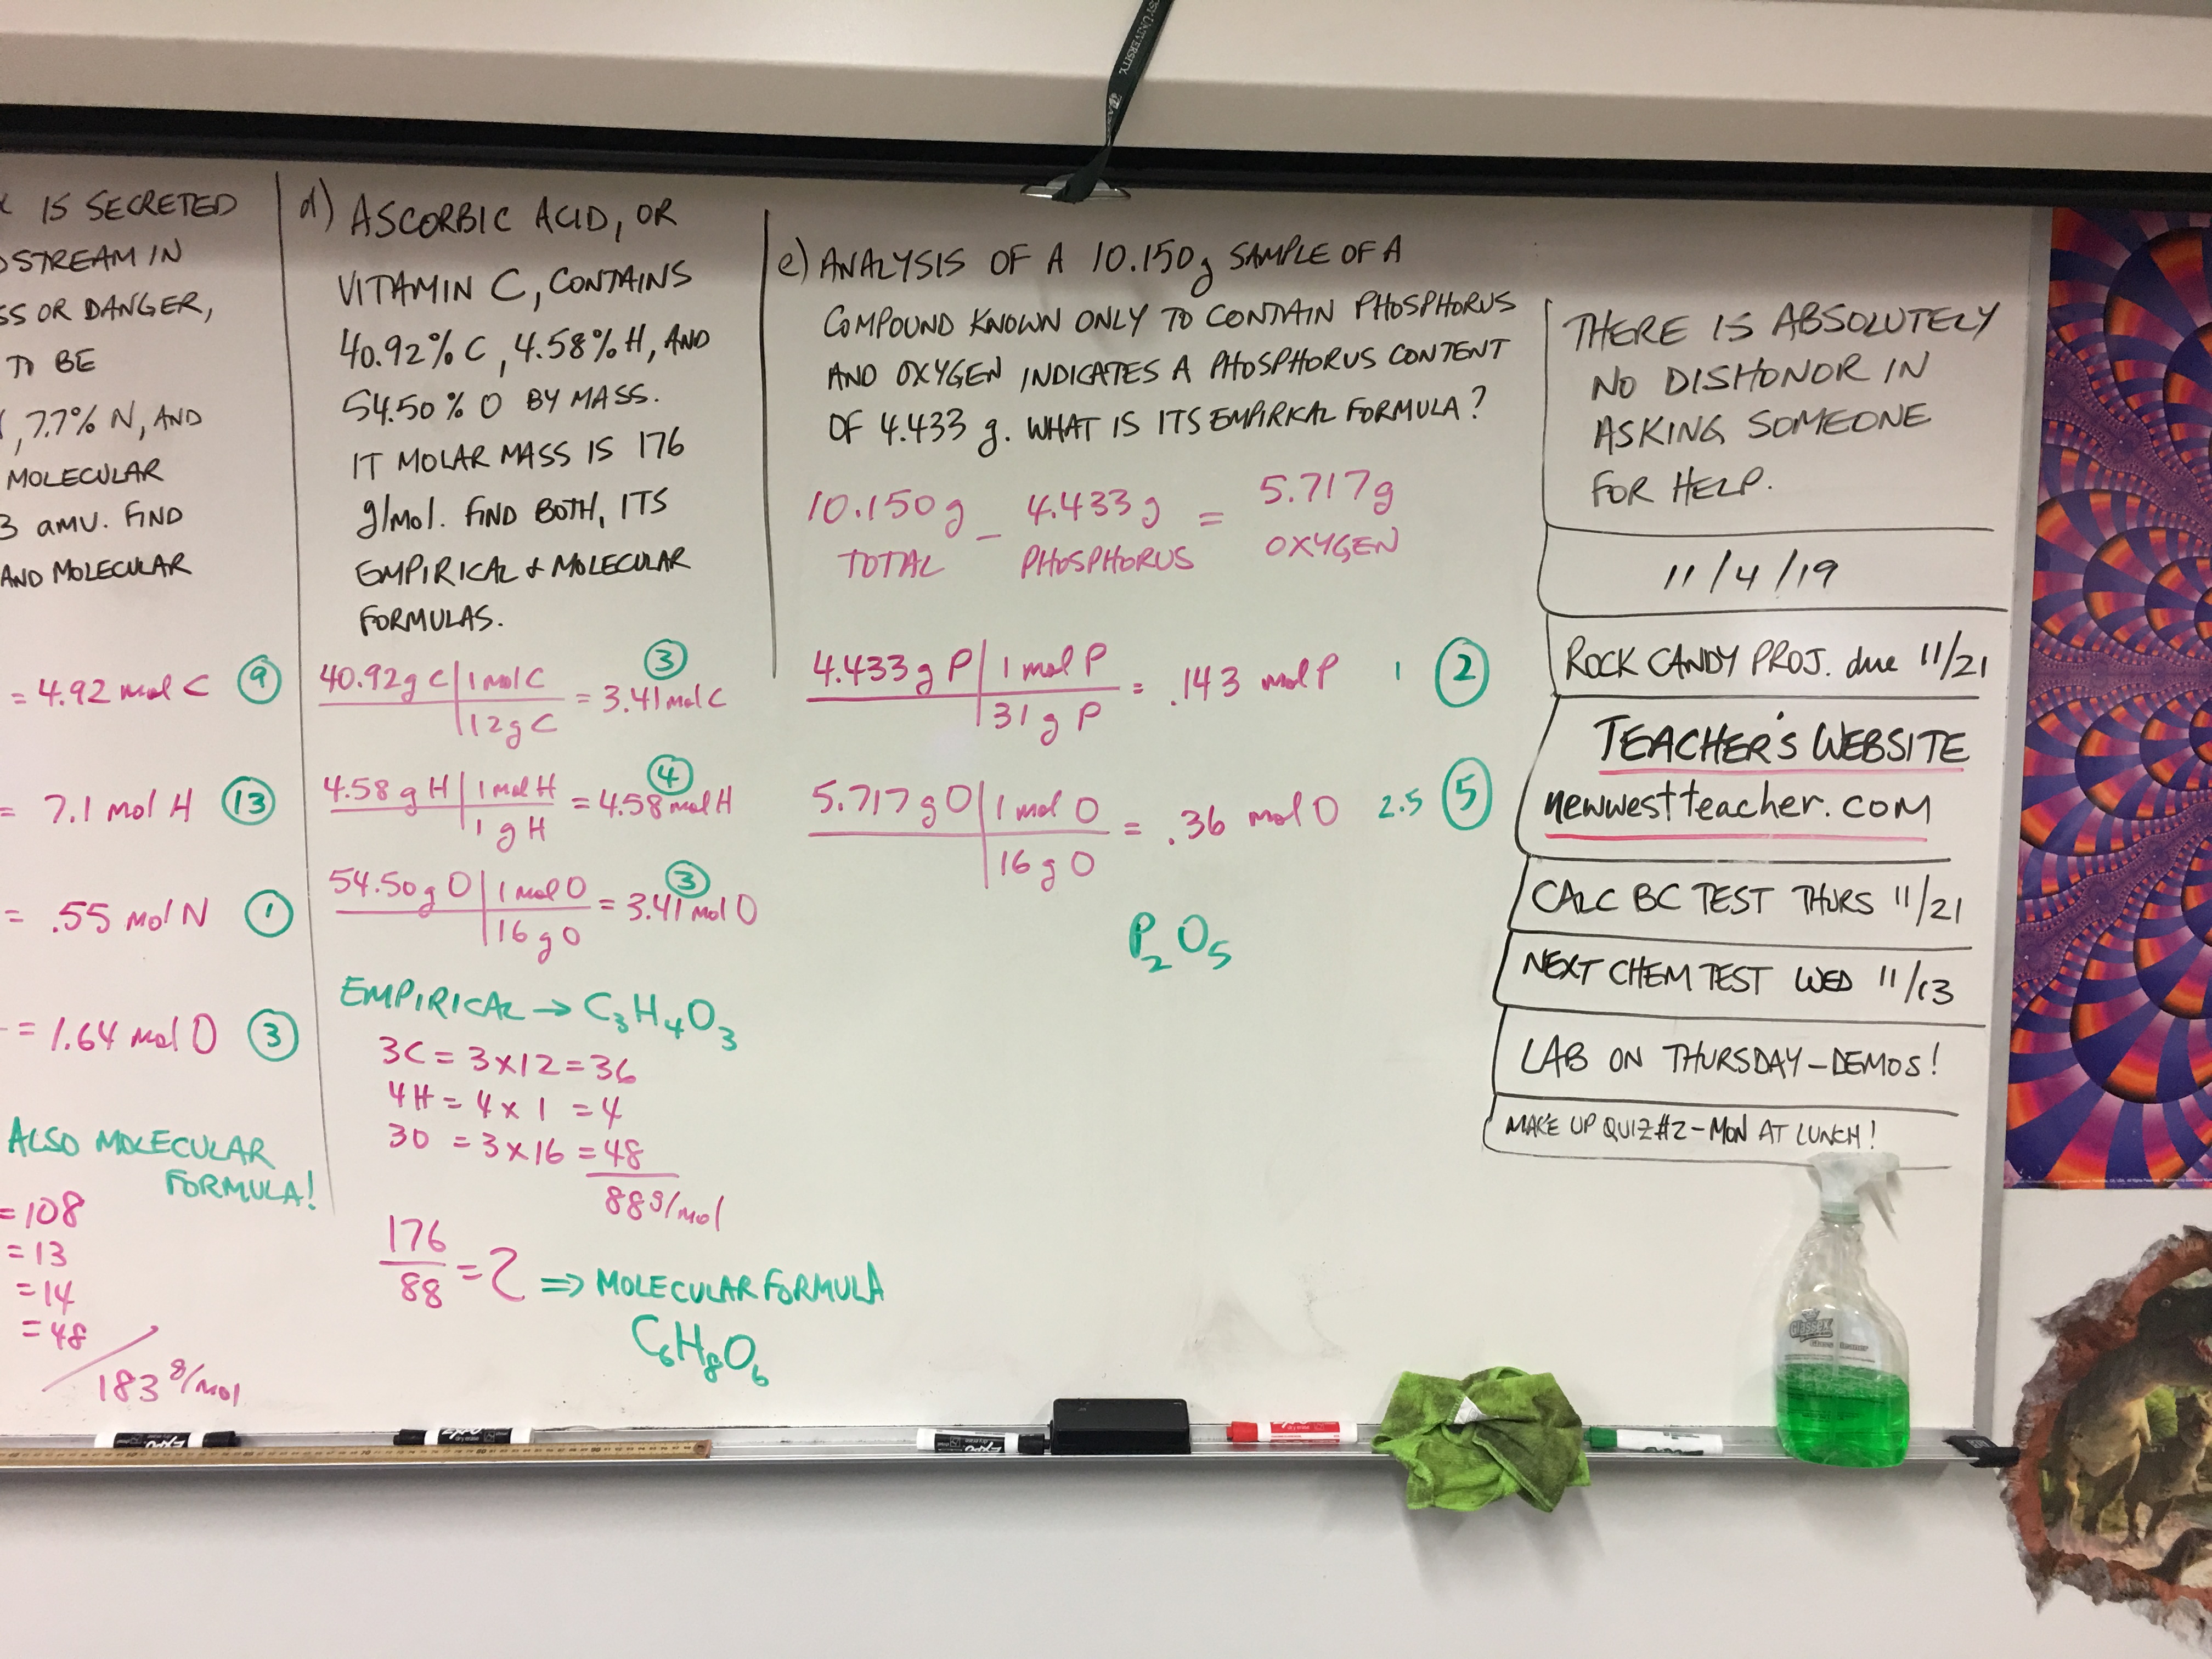 IS SECRETED
STREAM IN
SS OR DANGER,
TO BE
, 7.7% N, AND
MOLECULAR
3 amu. FIND
AND MOLECULAR
= 4.92 mol C 9
= 7.1 mol H 13
= .55 mol N 1
= 1.64 mol O 3
ALSO MOLECULAR
FORMULA!
= 108
= 13
= 14
= 48
183 g/mol
d) ASCORBIC ACID, OR
VITAMIN C, CONTAINS
40.92% C, 4.58% H, AND
54.50% O BY MASS.
IT MOLAR MASS IS 176
g/mol. FIND BOTH, ITS
EMPIRICAL & MOLECULAR
FORMULAS.
40.92g C | 1 mol C = 3.41 mol C 3
12g C
4.58 g H | 1 mol H = 4.58 mol H 4
1 g H
54.50g O | 1 mol O = 3.41 mol O 3
16 g O
EMPIRICAL → C₃H₄O₃
3C = 3 x 12 = 36
4H = 4 x 1 = 4
3O = 3 x 16 = 48
88 g/mol
176
88 = 2 ⇒ MOLECULAR FORMULA
C₆H₈O₆
e) ANALYSIS OF A 10.150g SAMPLE OF A
COMPOUND KNOWN ONLY TO CONTAIN PHOSPHORUS
AND OXYGEN INDICATES A PHOSPHORUS CONTENT
OF 4.433 g. WHAT IS ITS EMPIRICAL FORMULA?
10.150g - 4.433g = 5.717g
TOTAL PHOSPHORUS OXYGEN
4.433g P | 1 mol P = .143 mol P 1 2
31 g P
5.717 g O | 1 mol O = .36 mol O 2.5 5
16 g O
P₂O₅
THERE IS ABSOLUTELY
NO DISHONOR IN
ASKING SOMEONE
FOR HELP.
11/4/19
ROCK CANDY PROJ. due 11/21
TEACHER'S WEBSITE
newwestteacher.com
CALC BC TEST THURS 11/21
NEXT CHEM TEST WED 11/13
LAB ON THURSDAY - DEMOS!
MAKE UP QUIZ #2 - MON AT LUNCH!
Glassex
EXPO
EXPO
EXPO